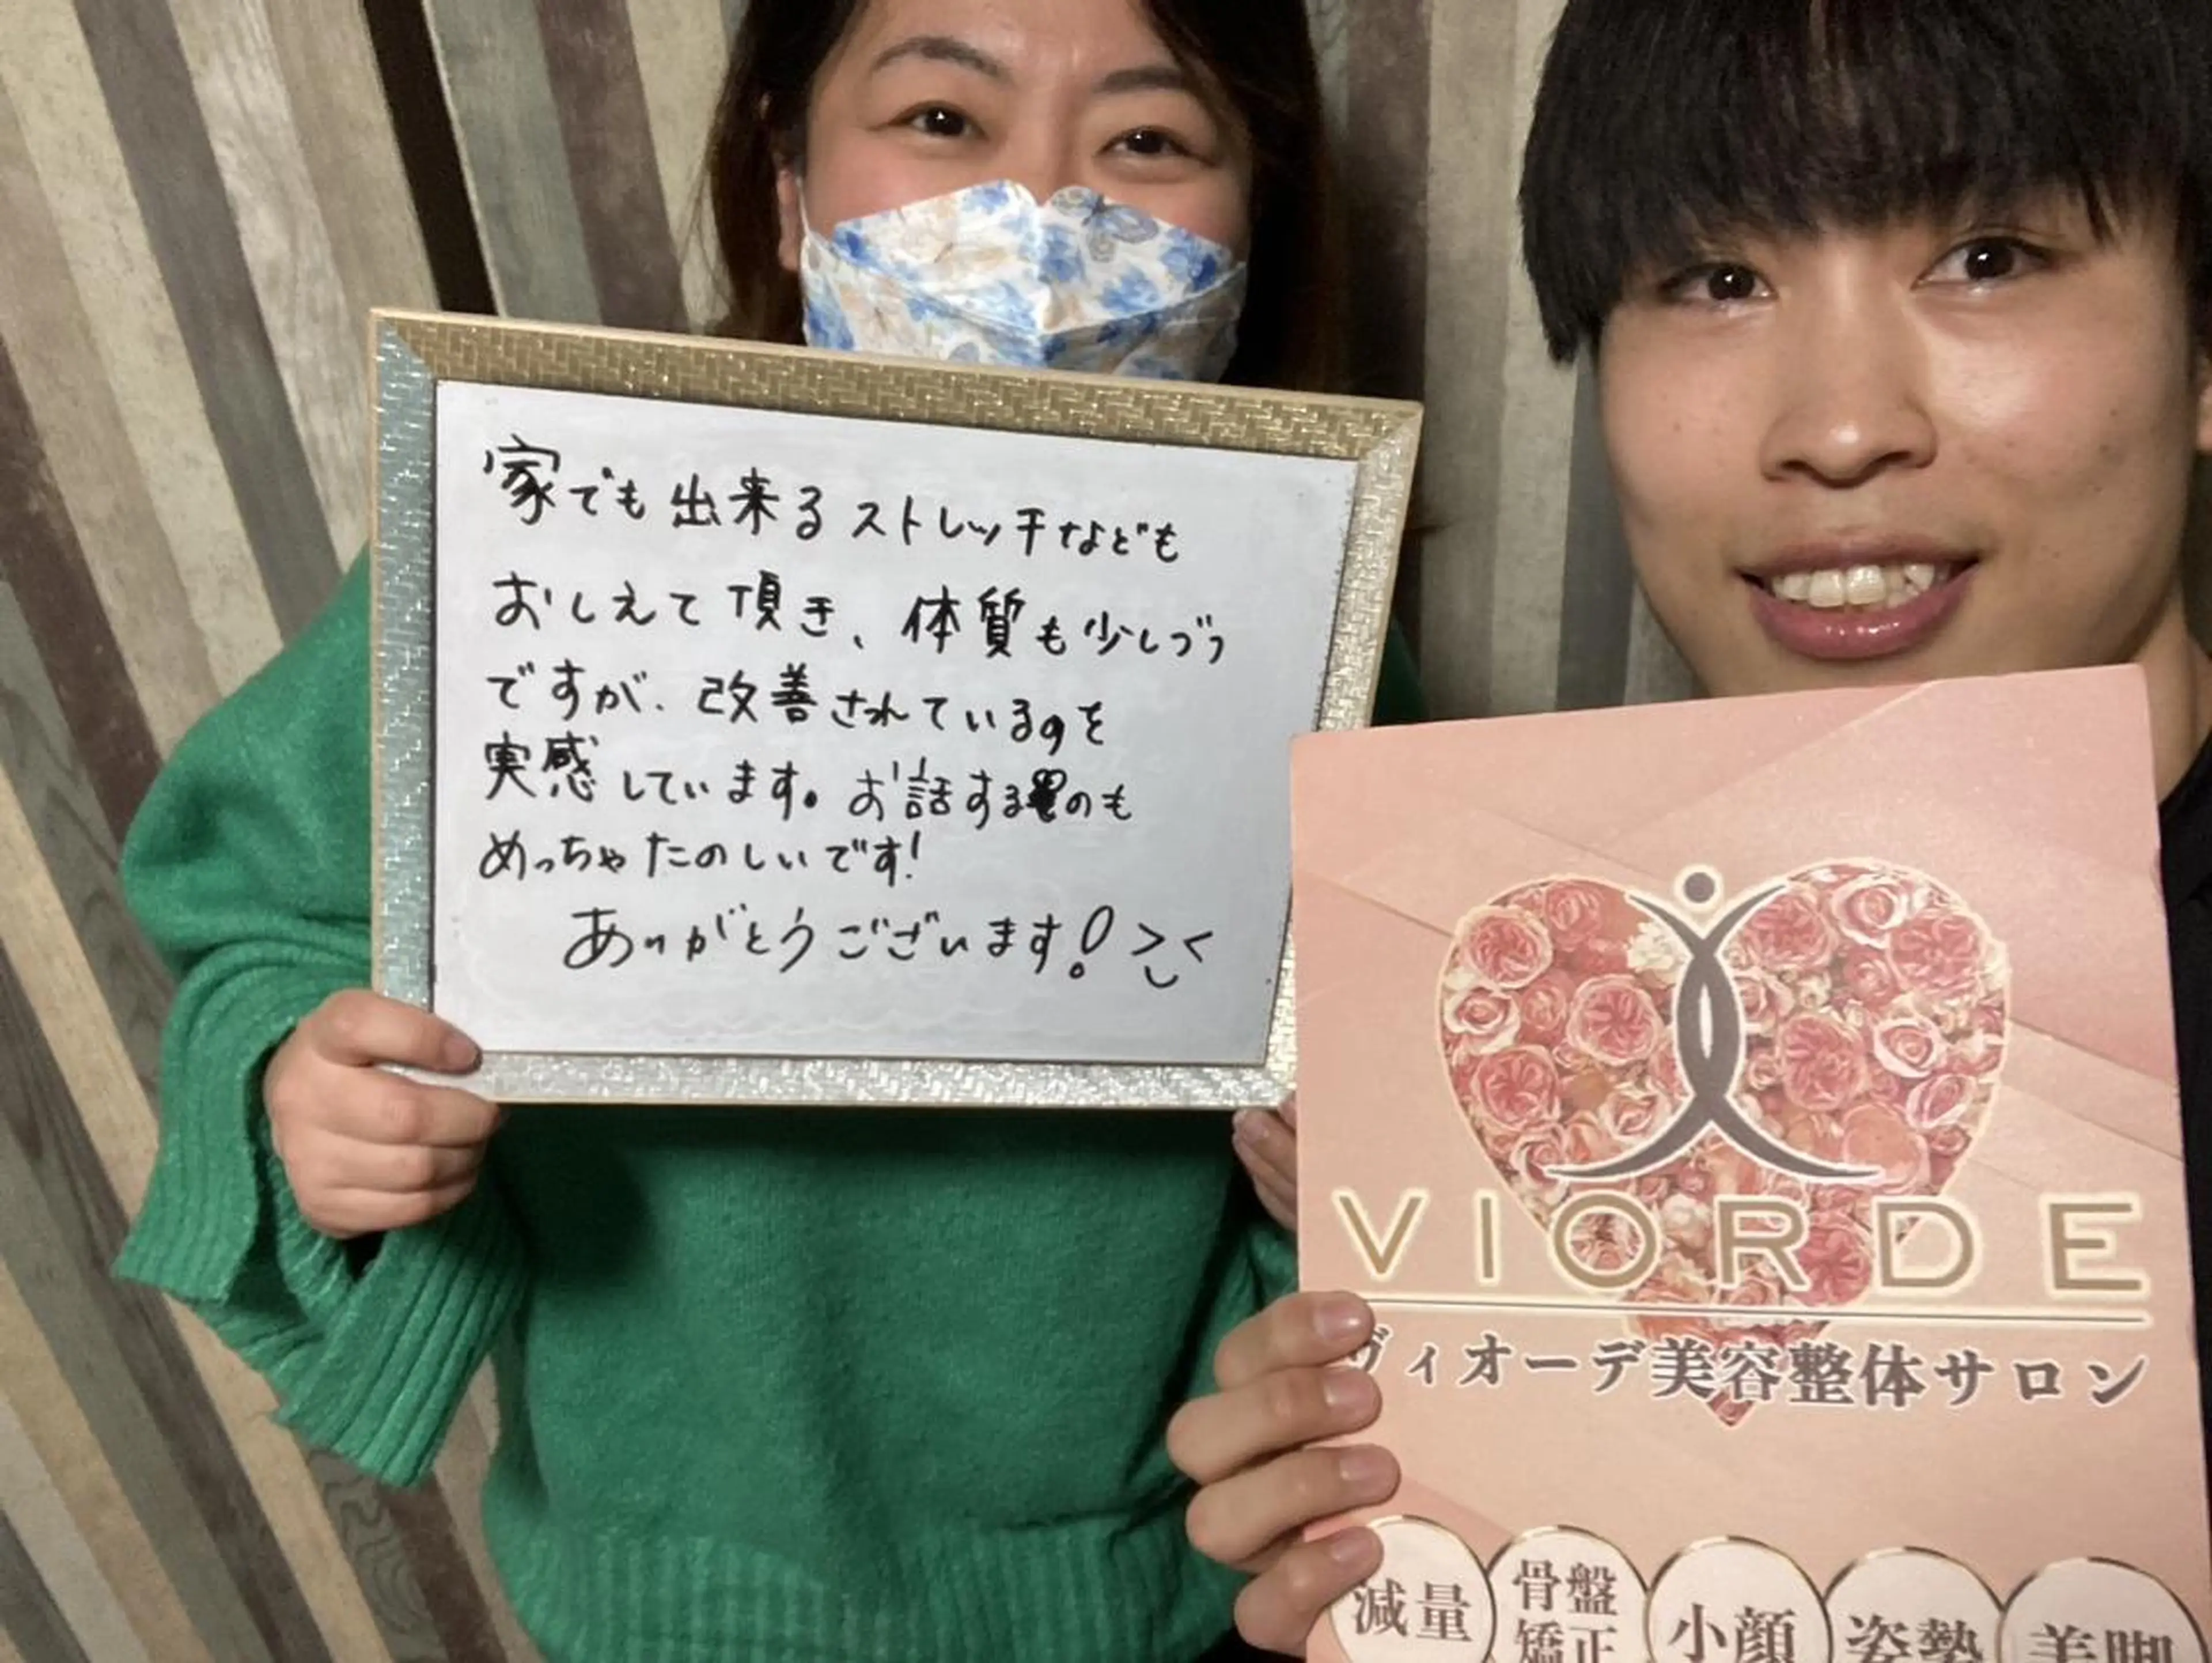 家でも出来るストレッチなども
おしえて頂き、体質も少しづつ
ですが、改善されているのを
実感しています。お話するのも
めっちゃたのしいです!
ありがとうございます!
VIORDE
ヴィオーデ美容整体サロン
減量
骨盤
矯正
小顔
姿勢
美脚